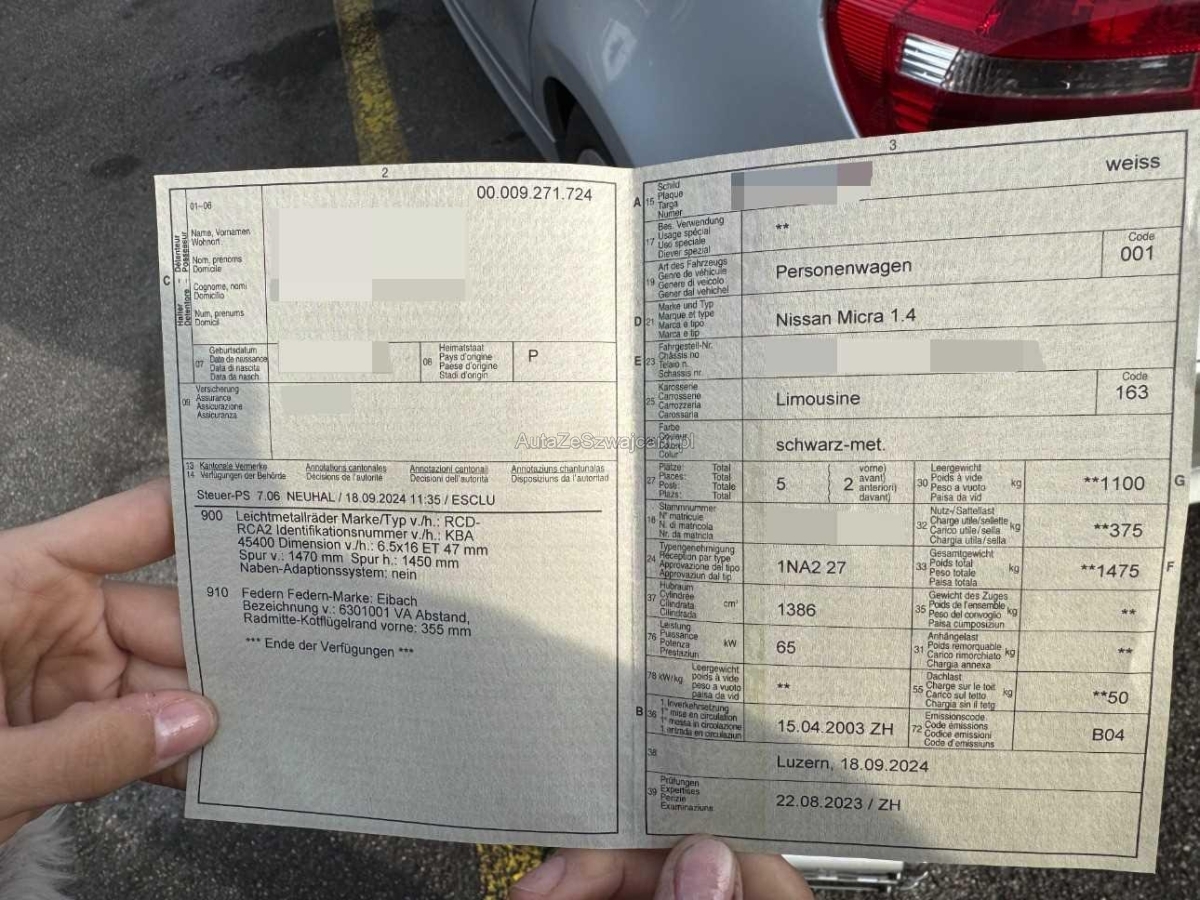 2
00.009.271.724
01–06
Name, Vornamen
Wohnort
Nom, prénoms
Domicile
Cognome, nomi
Domicilio
Num, prenums
Domicil
C
Halter Détenteur
Detentore Possessur
07
Geburtsdatum
Date de naissance
Data di nascita
Data da nasch.
08
Heimatstaat
Pays d'origine
Paese d'origine
Stadi d'origin
P
09
Versicherung
Assurance
Assicurazione
Assicuranza
13
14
Kantonale Vermerke
Verfügungen der Behörde
Annotations cantonales
Décisions de l'autorité
Annotazioni cantonali
Decisioni dell'autorità
Annotaziuns chantunalas
Disposiziuns da l'autoritad
Steuer-PS 7.06 NEUHAL / 18.09.2024 11:35 / ESCLU
900 Leichtmetallräder Marke/Typ v./h.: RCD-
RCA2 Identifikationsnummer v./h.: KBA
45400 Dimension v./h.: 6.5x16 ET 47 mm
Spur v.: 1470 mm Spur h.: 1450 mm
Naben-Adaptionssystem: nein
910 Federn Federn-Marke: Eibach
Bezeichnung v.: 6301001 VA Abstand,
Radmitte-Kotflügelrand vorne: 355 mm
*** Ende der Verfügungen ***
3
A 15
Schild
Plaque
Targa
Numer
weiss
17
Bes. Verwendung
Usage spécial
Uso speciale
Diever spezial
**
19
Art des Fahrzeugs
Genre de véhicule
Genere di veicolo
Gener dal vehichel
Personenwagen
Code
001
D 21
Marke und Typ
Marque et type
Marca e tipo
Marca e tip
Nissan Micra 1.4
E 23
Fahrgestell-Nr.
Châssis no
Telaio n.
Schassis nr.
25
Karosserie
Carrosserie
Carrozzeria
Carossaria
Limousine
Code
163
Farbe
Couleur
Colur
schwarz-met.
AutaZeSzwajcarii.pl
27
Plätze: Total
Places: Total
Posti: Totale
Plazs: Total
5
2
vorne)
avant)
anteriori)
davant)
30
Leergewicht
Poids à vide
Peso a vuoto
Paisa da vid
kg
**1100
G
18
Stammnummer
N° matricule
N. di matricola
Nr. da matricla
32
Nutz-/Sattellast
Charge utile/sellette
Carico utile/sella
Chargia utila/sella
kg
**375
24
Typengenehmigung
Réception par type
Approvazione del tipo
Approvaziun dal tip
1NA2 27
33
Gesamtgewicht
Poids total
Peso totale
Paisa totala
kg
**1475
F
37
Hubraum
Cylindrée
Cilindrata
Cilindrada
cm³
1386
35
Gewicht des Zuges
Poids de l'ensemble
Peso del convoglio
Paisa cumposiziun
kg
**
76
Leistung
Puissance
Potenza
Prestaziun
kW
65
31
Anhängelast
Poids remorquable
Carico rimorchiato
Chargia annexa
kg
**
78 kW/kg
Leergewicht
poids à vide
peso a vuoto
paisa da vid
**
55
Dachlast
Charge sur le toit
Carico sul tetto
Chargia sin il tetg
kg
**50
B 36
1. Inverkehrsetzung
1re mise en circulation
1a messa in circolazione
1. entrada en circulaziun
15.04.2003 ZH
72
Emissionscode
Code émissions
Codice emissioni
Code d'emissiuns
B04
38
Luzern, 18.09.2024
39
Prüfungen
Expertises
Perizie
Examinaziuns
22.08.2023 / ZH